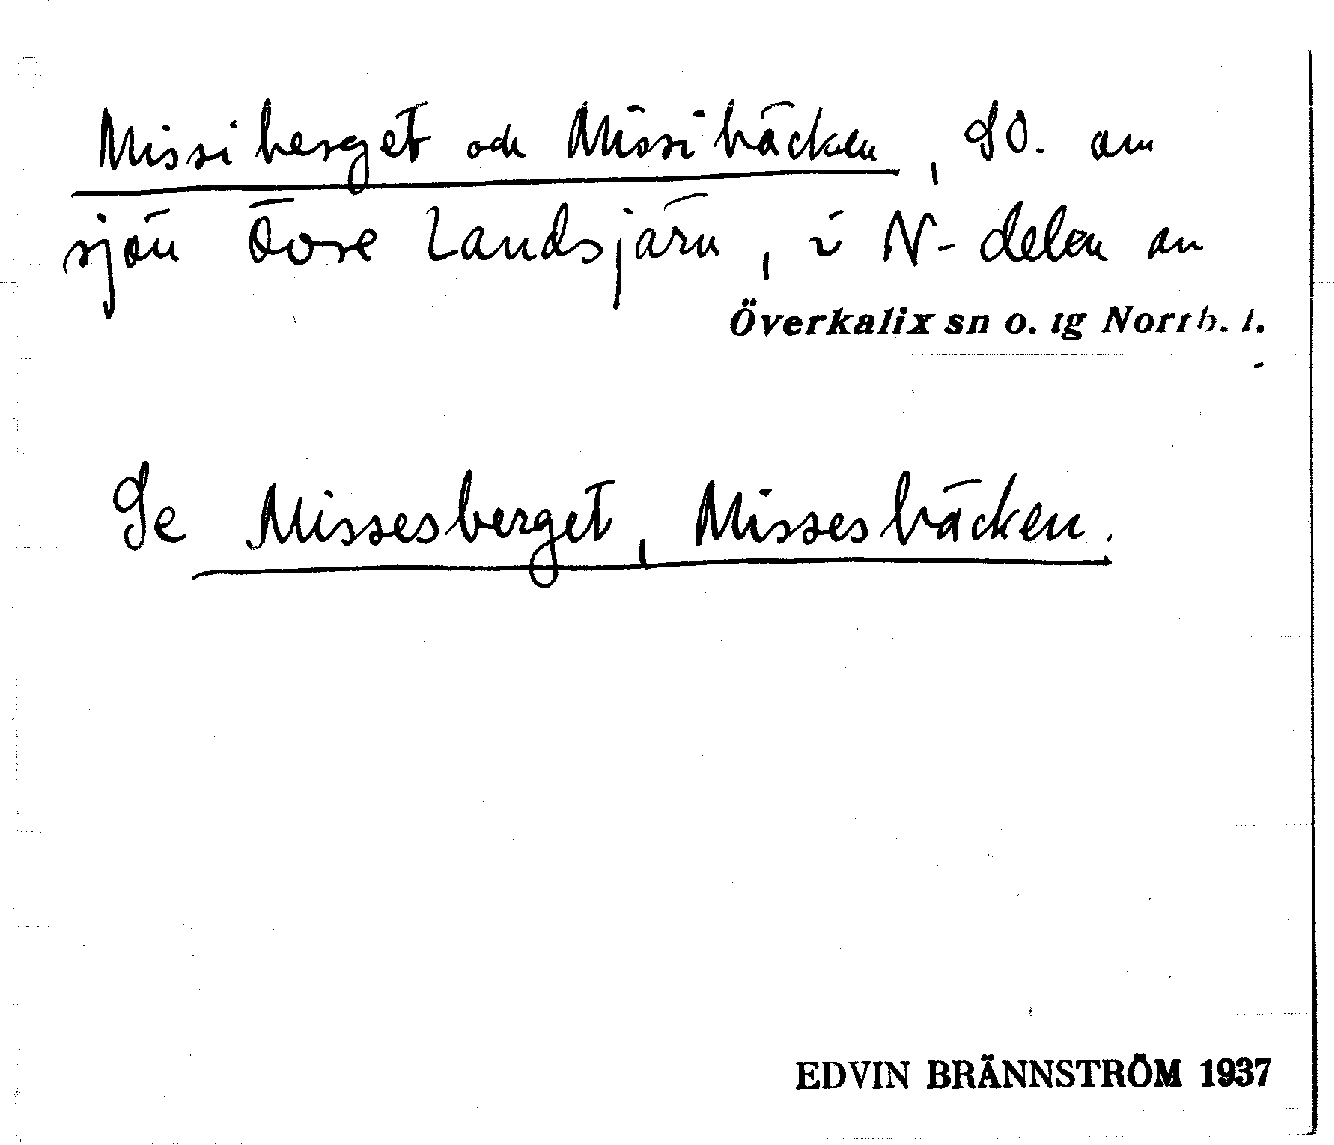 Missiberget och Missibäcken, SO. om
sjön Övre Landsjärv, i N-delen av
Överkalix sn o. tg Norrb. l.
Se Missesberget, Missesbäcken.
EDVIN BRÄNNSTRÖM 1937